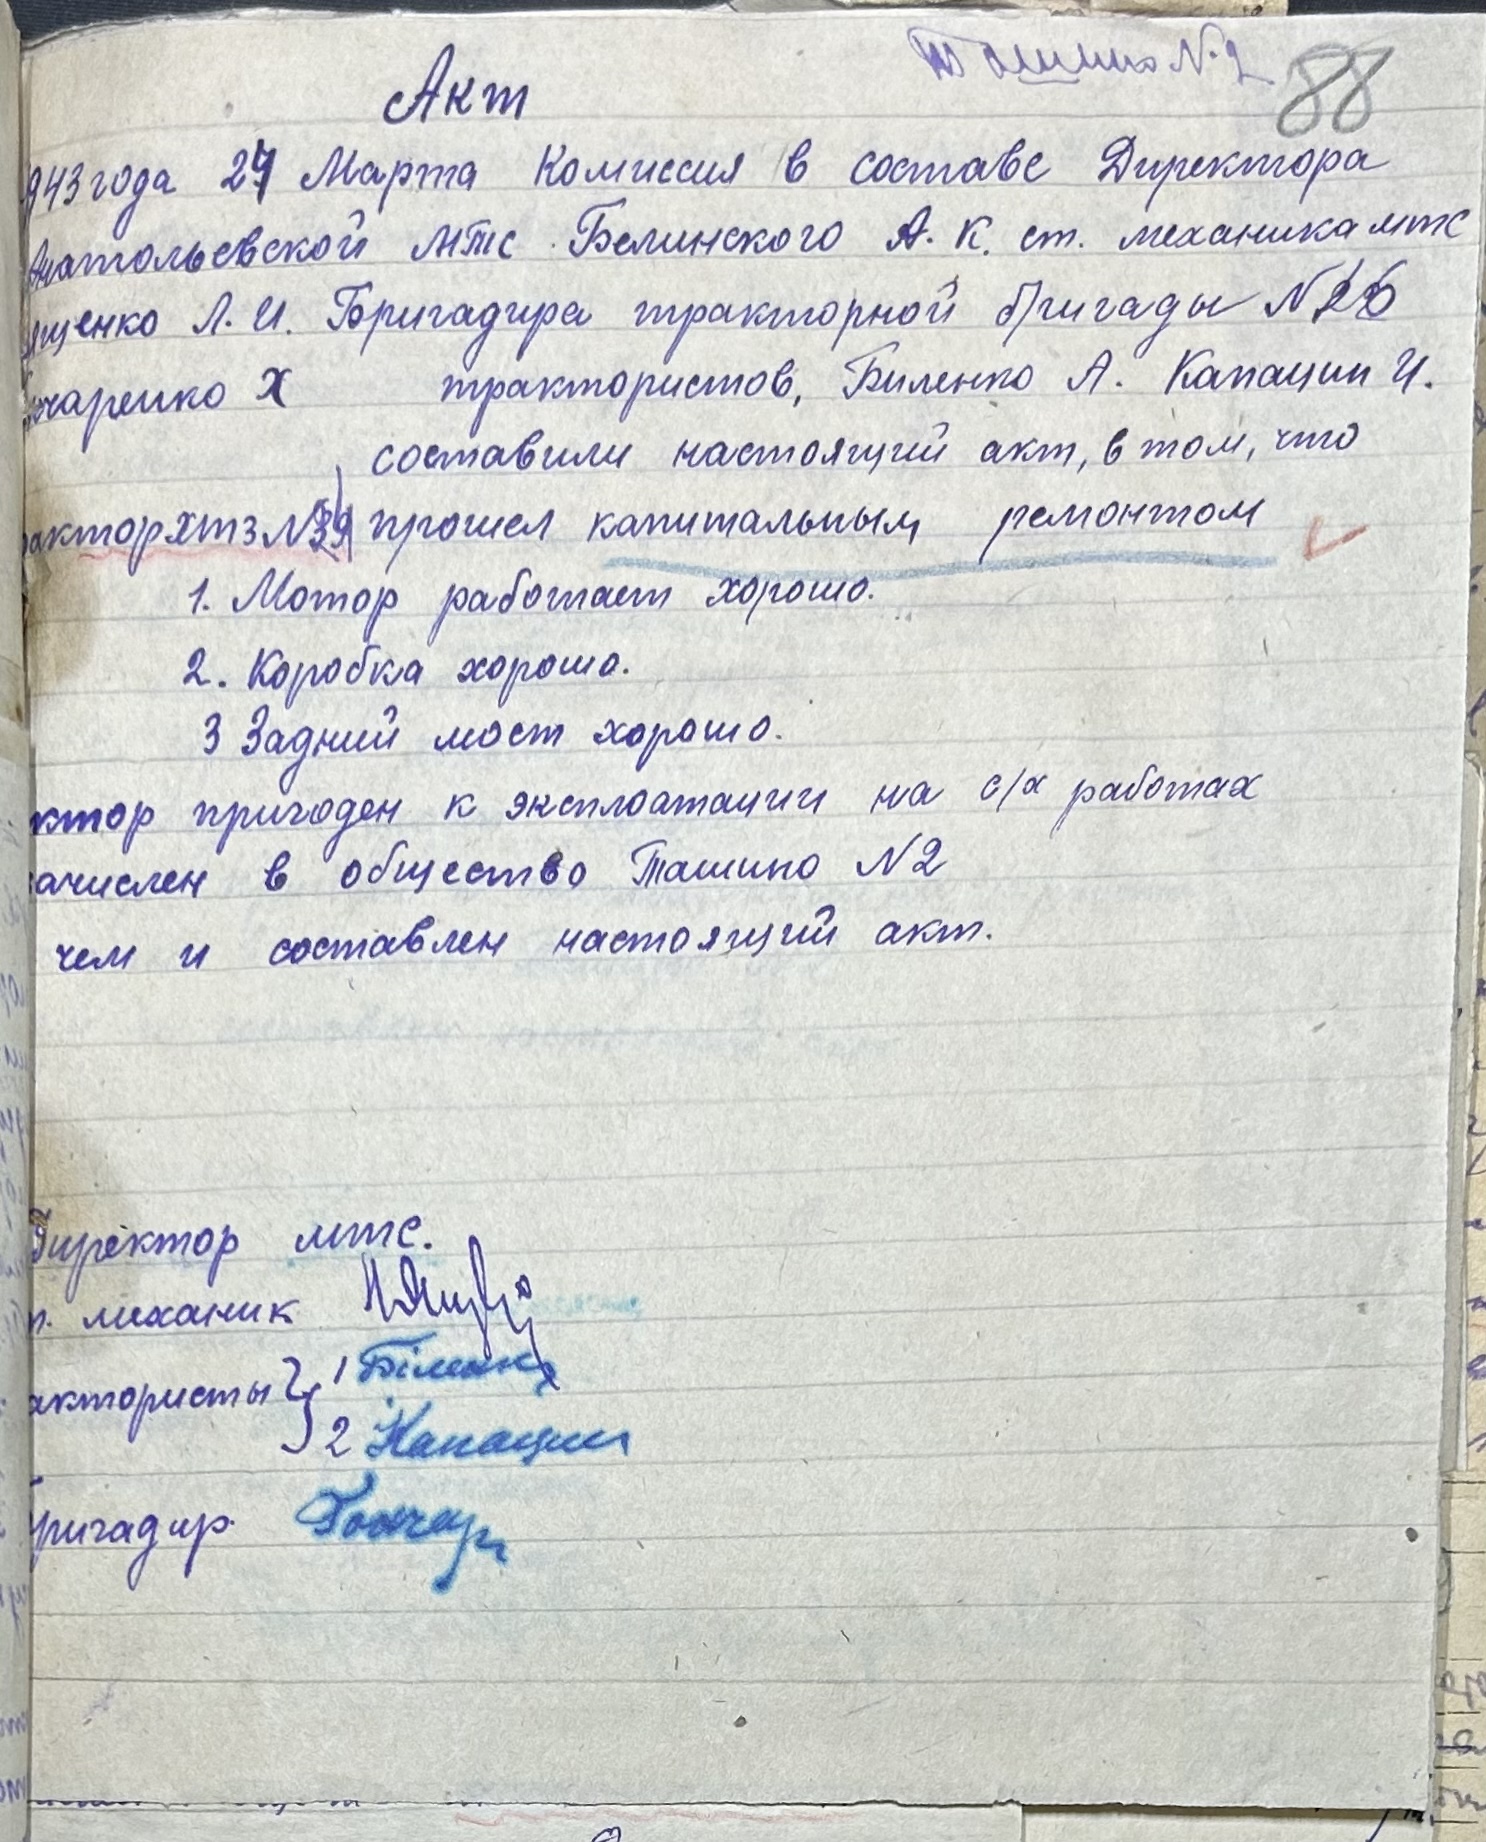 Ташино N. 2
88
Акт
943 года 27 Марта Комиссия в составе Директора
Анатольевской МТС Белинского А. К. ст. механика мтс
ященко Л. И. Бригадира тракторной бригады N 26
нчаренко Х трактористов, Биленко А. Капацин И.
составили настоящий акт, в том, что
рактор ХТЗ N 39 прошел капитальным ремонтом
1. Мотор работает хорошо.
2. Коробка хорошо.
3 Задний мост хорошо.
ктор пригоден к эксплоатации на с/х работах
зачислен в общество Ташино N 2
чем и составлен настоящий акт.
Директор мтс.
т. механик
актористы 1 Біленко
2 Капацин
Бригадир. Гончар